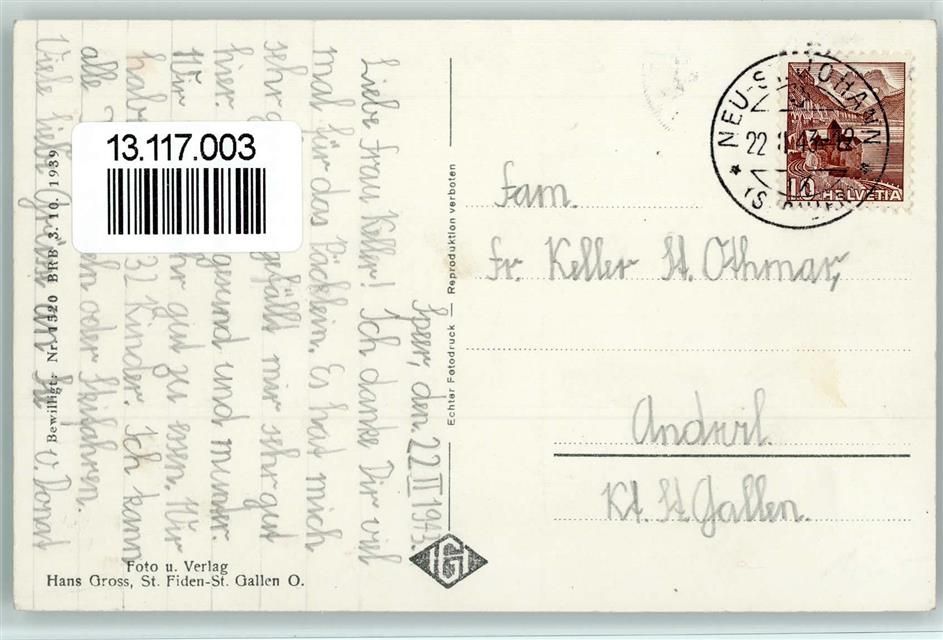 Speer, den 22 II 1943.
Liebe Frau Keller! Ich danke Dir viel
mal für das Päcklein. Es hat mich
sehr gefällt mir sehr gut
hier. gesund und munter.
Wir sehr gut zu essen. Wir
haben 32 Kinder. Ich kann
alle oder Skifahren.
Viele liebe Grüsse an
v. Donat
13.117.003
Bewilligt. Nr. 1520 BRB 3.10.1939
Foto u. Verlag
Hans Gross, St. Fiden-St. Gallen O.
Echter Fotodruck — Reproduktion verboten
NEU-ST. JOHANN
22. II. 43
10 HELVETIA
Fam.
Fr. Keller St. Othmar,
Andwil.
Kt. St. Gallen.